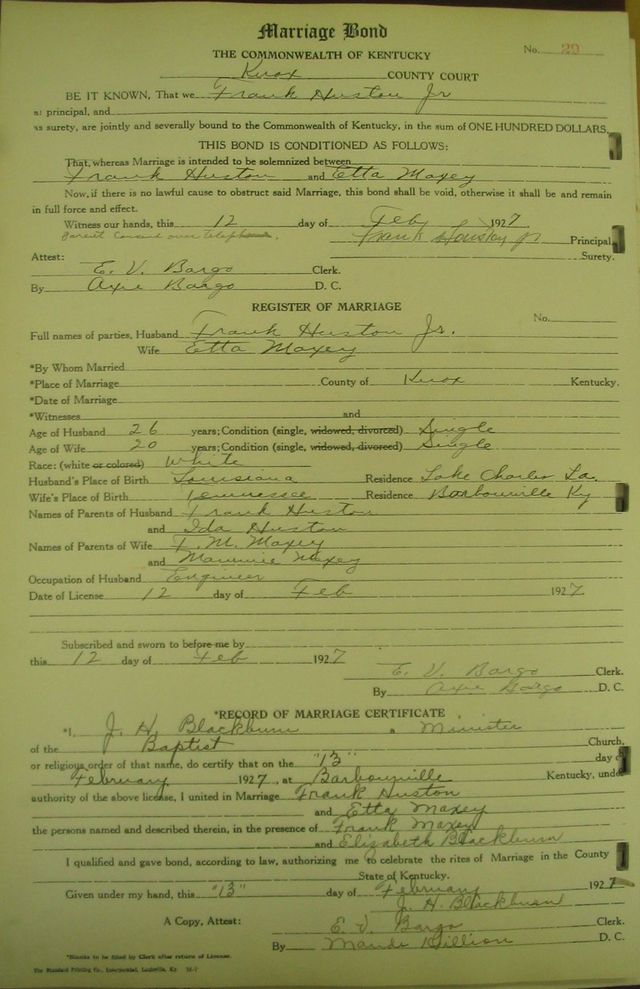 Marriage Bond
No. 29
THE COMMONWEALTH OF KENTUCKY
Knox COUNTY COURT
BE IT KNOWN, That we Frank Huston Jr
as principal, and
as surety, are jointly and severally bound to the Commonwealth of Kentucky, in the sum of ONE HUNDRED DOLLARS.
THIS BOND IS CONDITIONED AS FOLLOWS:
That, whereas Marriage is intended to be solemnized between
Frank Huston and Etta Maxey
Now, if there is no lawful cause to obstruct said Marriage, this bond shall be void, otherwise it shall be and remain
in full force and effect.
Witness our hands, this 12 day of Feb 1927
over telephone. Frank Houston Jr Principal,
Surety.
Attest:
E. V. Bargo Clerk.
By Axie Bargo D. C.
REGISTER OF MARRIAGE
No.
Full names of parties, Husband Frank Huston Jr.
Wife Etta Maxey
*By Whom Married
*Place of Marriage County of Knox Kentucky.
*Date of Marriage
*Witnesses and
Age of Husband 26 years; Condition (single, widowed, divorced) Single
Age of Wife 20 years; Condition (single, widowed, divorced) Single
Race: (white or colored) White
Husband's Place of Birth Louisiana Residence Lake Charles La.
Wife's Place of Birth Tennessee Residence Barbourville Ky
Names of Parents of Husband Frank Huston
and Ida Huston
Names of Parents of Wife F. M. Maxey
and Maxey
Occupation of Husband Engineer
Date of License 12 day of Feb 1927
Subscribed and sworn to before me by
this 12 day of Feb 1927
E. V. Bargo Clerk.
By Axie Bargo D. C.
*RECORD OF MARRIAGE CERTIFICATE
*I, J. H. Blackburn a Minister
of the Baptist Church,
or religious order of that name, do certify that on the "13" day of
February 1927, at Barbourville Kentucky, under
authority of the above license, I united in Marriage Frank Huston
and Etta Maxey
the persons named and described therein, in the presence of Frank Maxey
and Elizabeth Blackburn
I qualified and gave bond, according to law, authorizing me to celebrate the rites of Marriage in the County
State of Kentucky.
Given under my hand, this "13" day of February 1927
J. H. Blackburn
A Copy, Attest: E. V. Bargo Clerk.
By Maude Billion D. C.
*Blanks to be filled by Clerk after return of License.
The Standard Printing Co., Incorporated, Louisville, Ky.